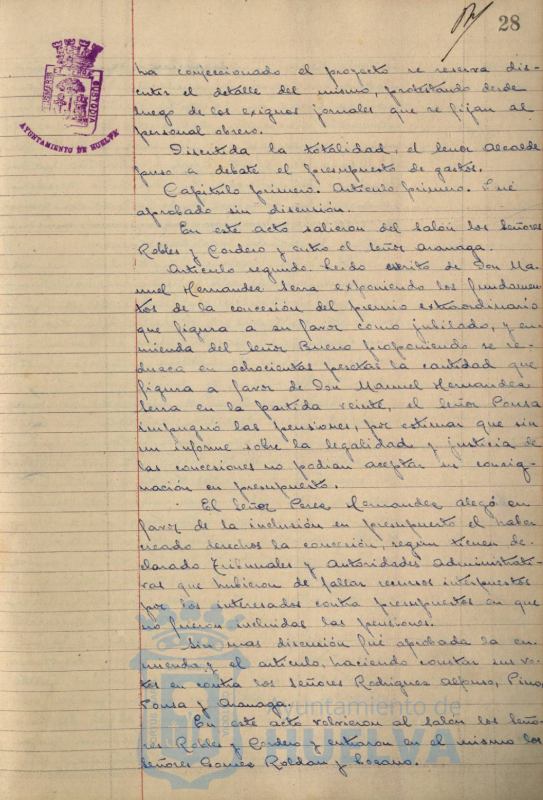 28
AYUNTAMIENTO DE HUELVA
ha confeccionado el proyecto se reserva dis-
cutir el detalle del mismo, protestando desde
luego de los exiguos jornales que se fijan al
personal obrero.
Discutida la totalidad, el señor Alcalde
puso a debate el presupuesto de gastos.
Capítulo primero. Artículo primero. Fué
aprobado sin discusión.
En este acto salieron del salón los señores
Robles y Cordero y entró el señor Aranaga.
Artículo segundo. Leido escrito de Don Ma-
nuel Hernandez Serra exponiendo los fundamen-
tos de la concesión del premio extraordinario
que figura a su favor como jubilado, y en-
mienda del señor Bueno proponiendo se re-
duzca en ochocientas pesetas la cantidad que
figura a favor de Don Manuel Hernandez
Serra en la partida veinte, el señor Ponsa
impugnó las pensiones, por estimar que sin
un informe sobre la legalidad y justicia de
las concesiones no podian aceptar su consig-
nación en presupuesto.
El Señor Perez Hernandez alegó en
favor de la inclusión en presupuesto el haber
creado derechos la concesión, según tienen de-
clarado Tribunales y Autoridades Administrati-
vas que hubieron de fallar recursos interpuestos
por los interesados contra presupuestos en que
no fueron incluidas las pensiones.
Sin mas discusión fué aprobada la en-
mienda y el artículo, haciendo constar sus vo-
tos en contra los señores Rodriguez Alfonso, Pino,
Ponsa y Aranaga.
En este acto volvieron al salón los seño-
res Robles y Cordero y entraron en el mismo los
señores Gomez Roldan y Lozano.
Ayuntamiento de
HUELVA